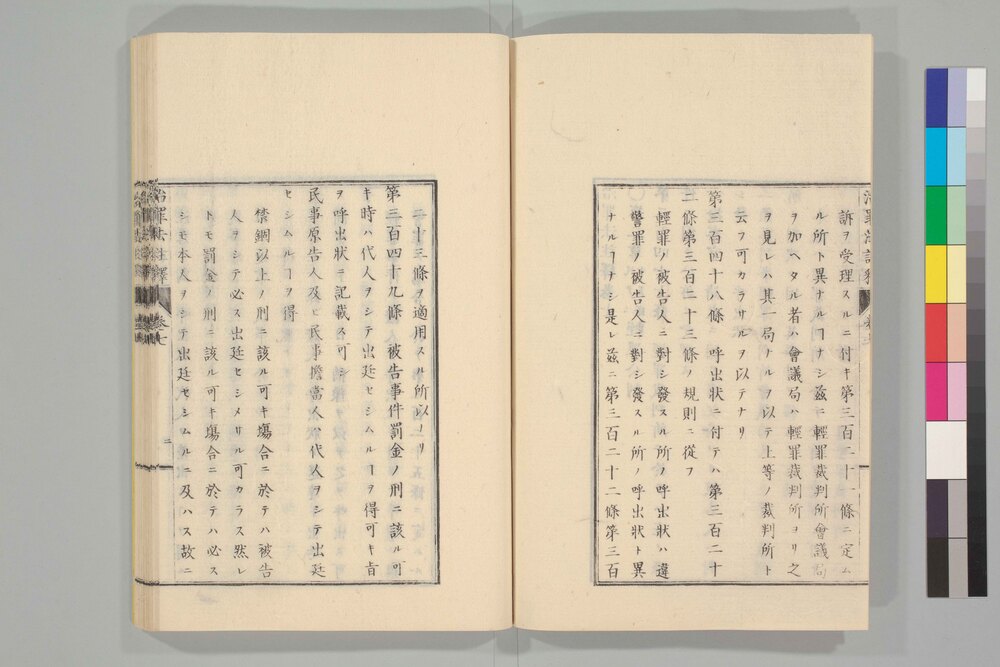 訴ヲ受理スルニ付キ第三百二十一條ニ定ム
ル所ト異ナルヿナシ茲ニ輕罪裁判所會議局
ヲ加ヘタル者ハ會議局ハ輕罪裁判所ヨリ之
ヲ見レハ其一局ナルヲ以テ上等ノ裁判所ト
云フ可カラサルヲ以テナリ
第三百四十八條 呼出狀ニ付テハ第三百二十
二條第三百二十三條ノ規則ニ從フ
輕罪ノ被告人ニ對シ發スル所ノ呼出狀ハ違
警罪ノ被告人ニ對シ發スル所ノ呼出狀ト異
ナルヿナシ是レ茲ニ第三百二十二條第三百
二十三條ヲ適用スル所以ナリ
第三百四十九條 被告事件罰金ノ刑ニ該ル可
キ時ハ代人ヲシテ出廷セシムルヿヲ得可キ旨
ヲ呼出狀ニ記載ス可シ
民事原告人及ヒ民事擔當人ハ代人ヲシテ出廷
セシムルヿヲ得
禁錮以上ノ刑ニ該ル可キ塲合ニ於テハ被告
人ヲシテ必ス出廷セシメサル可カラス然レ
トモ罰金ノ刑ニ該ル可キ塲合ニ於テハ必ス
シモ本人ヲシテ出廷セシムルニ及ハス故ニ
治罪法註釋 卷七 二